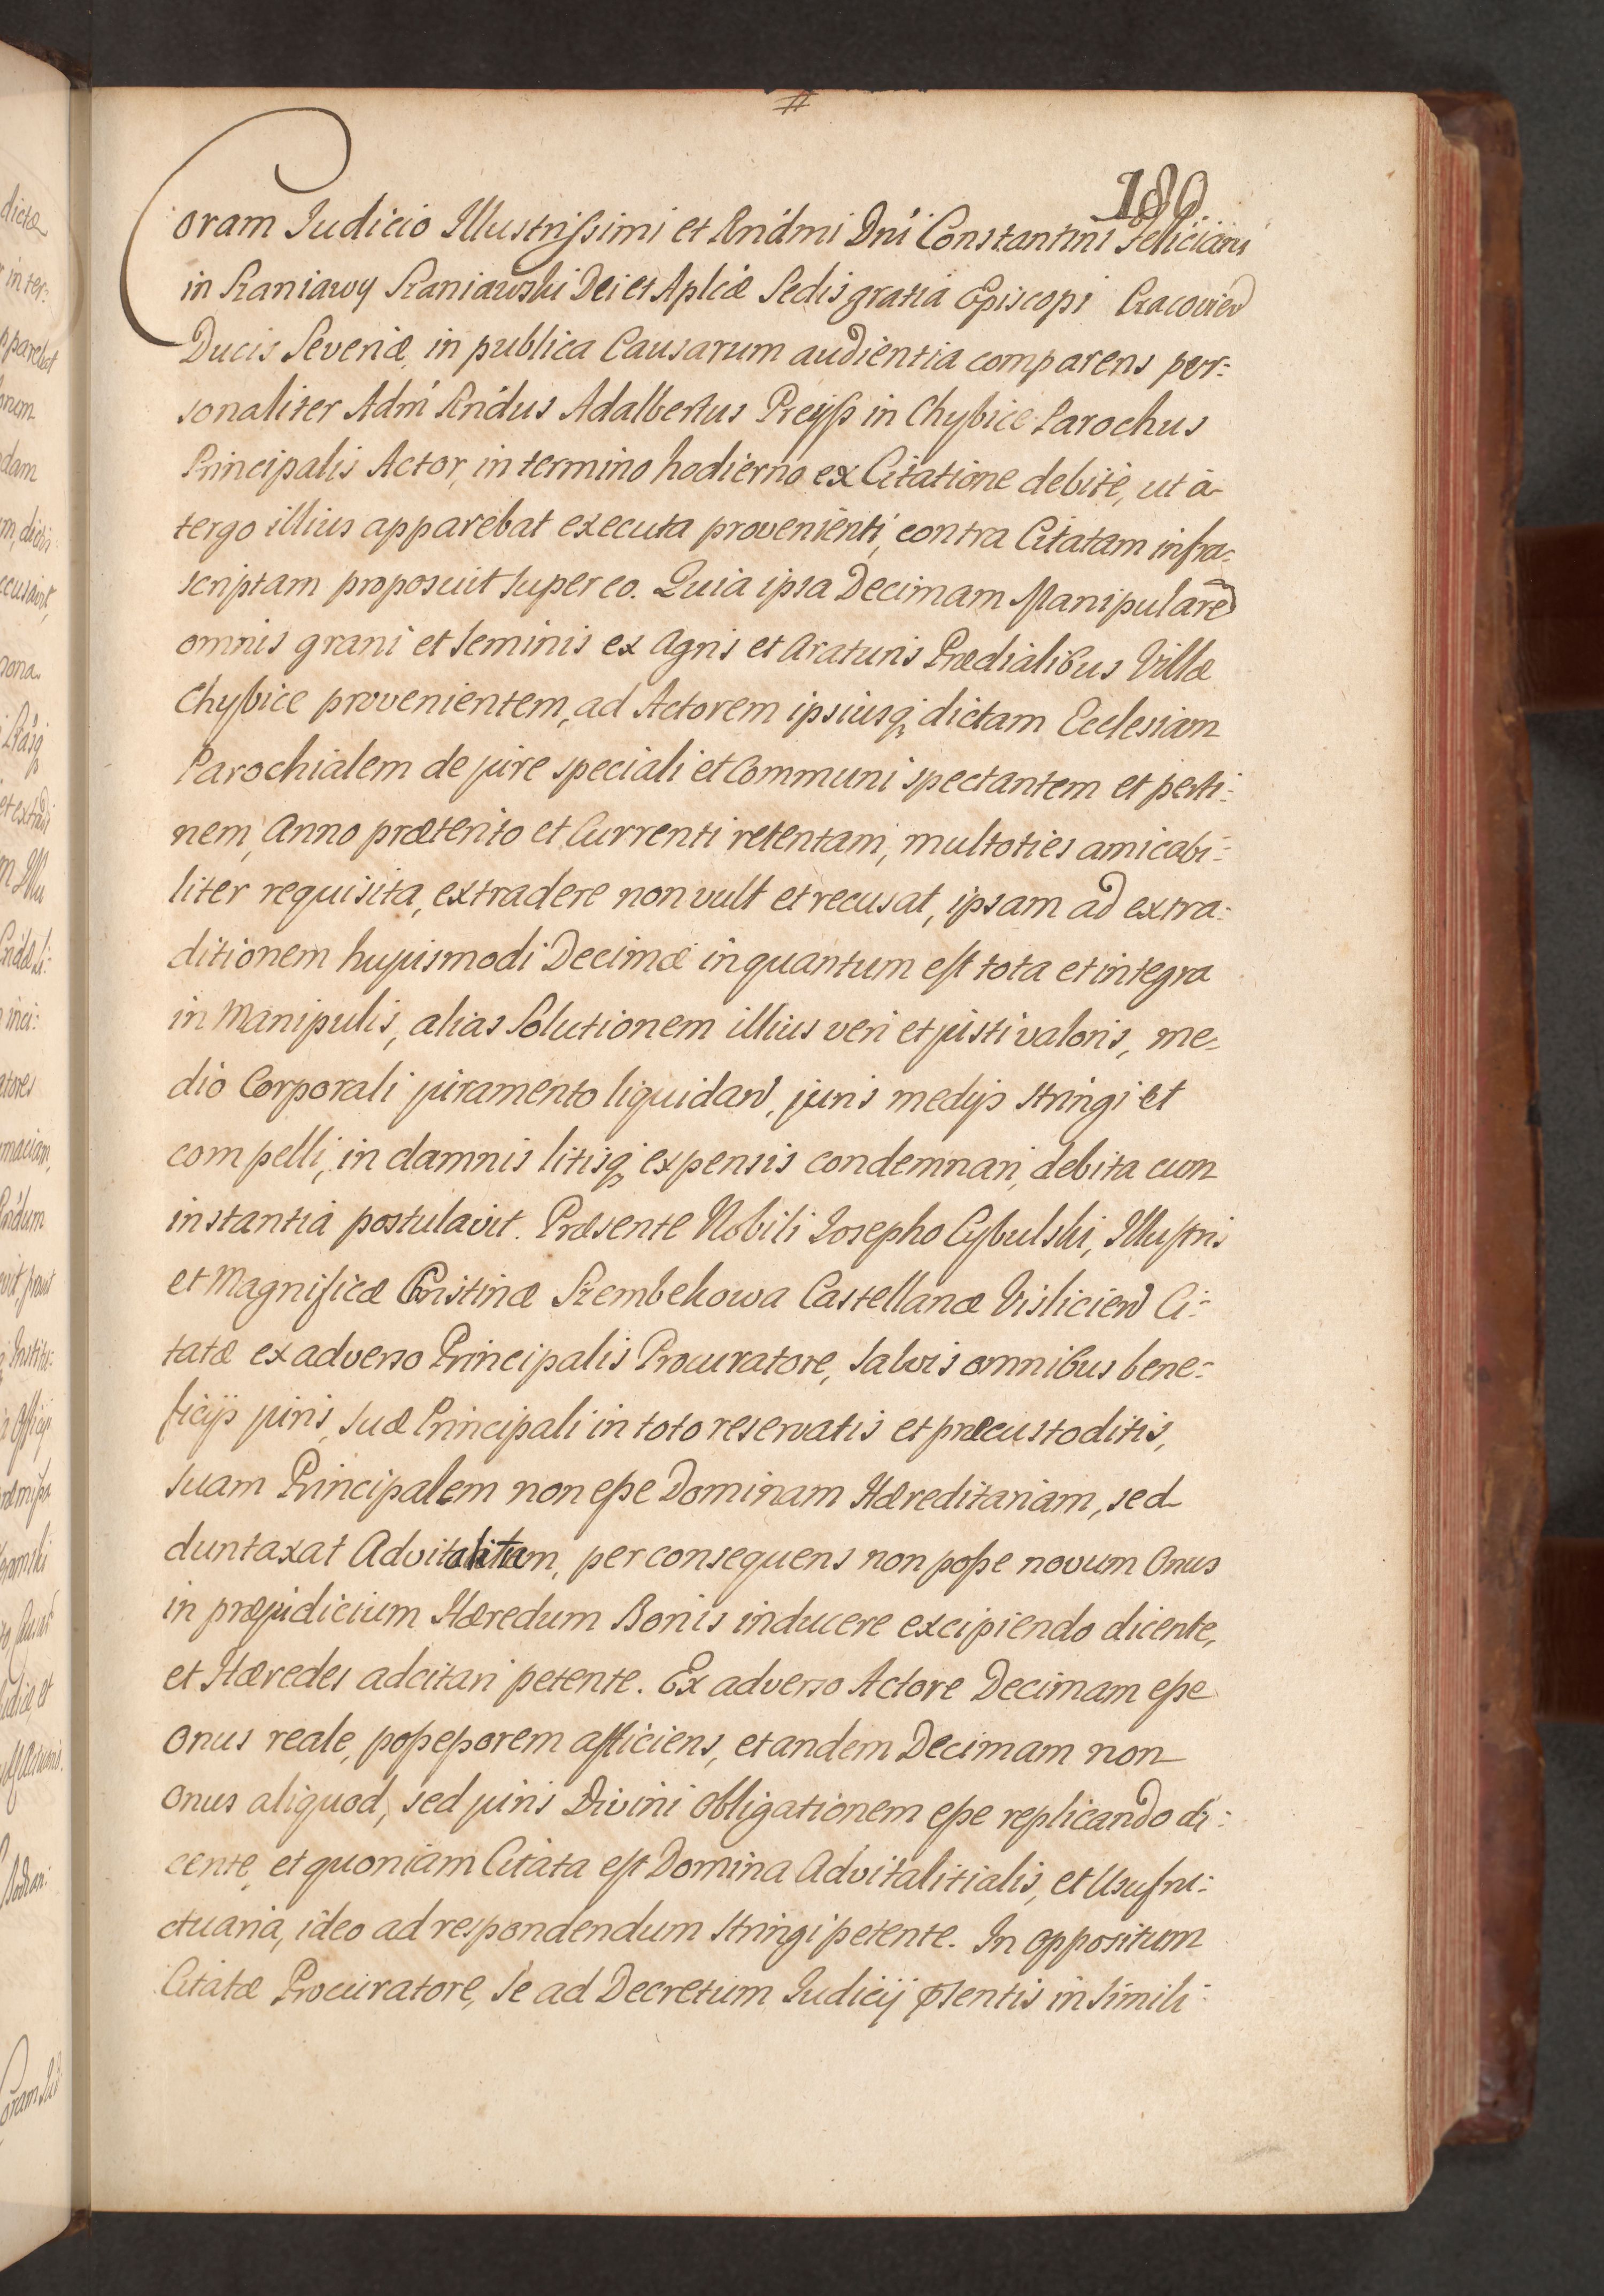 180
Coram Iudicio Illustrissimi et Rndmi Dni Constantini Feliciani
in Szaniawy Szaniawski Dei et Aplicæ Sedis gratia Episcopi Cracovien
Ducis Severiæ, in publica Causarum audientia comparens per:
sonaliter Adm Rndus Adalbertus Preyss in Chybice Parochus
Principalis Actor, in termino hodierno ex Citatione debite, ut a
tergo illius apparebat executa provenienti, contra Citatam infra:
scriptam proposuit super eo. Quia ipsa Decimam Manipularem
omnis grani et seminis ex Agris et Araturis Prædialibus Villæ
Chybice provenientem, ad Actorem ipsiusq dictam Ecclesiam
Parochialem de jure speciali et Communi spectantem et perti:
nem, Anno præterito et Currenti retentam, multoties amicabi:
liter requisita, extradere non vult et recusat, ipsam ad extra:
ditionem hujusmodi Decimæ inquantum est tota et integra
in Manipulis, alias Solutionem illius veri et justi valoris, me:
dio Corporali juramento liquidand, juris medijs stringi et
compelli, in damnis litisq expensis condemnari, debita cum
instantia postulavit. Præsente Nobili Josepho Cybulski, Illustris
et Magnificæ Cristinæ Szembekowa Castellanæ Vislicien Ci:
tatæ ex adverso Principalis Procuratore, salvis omnibus bene:
ficijs juris, suæ Principali in toto reservatis et præcustoditis,
suam Principalem non esse Dominam Hæreditariam, sed
duntaxat Advitalitam, per consequens non posse novum Onus
in præjudicium Hæredum Bonis inducere excipiendo dicente,
et Hæredes adcitari petente. Ex adverso Actore Decimam esse
Onus reale, possessorem afficiens, et andem Decimam non
Onus aliquod, sed juris Divini obligationem esse replicando di:
cente, et quoniam Citata est Domina Advitalitialis, et Usufru:
ctuaria, ideo ad respondendum stringi petente. In oppositum
Citatæ Procuratore, se ad Decretum Iudicij psentis in simili: